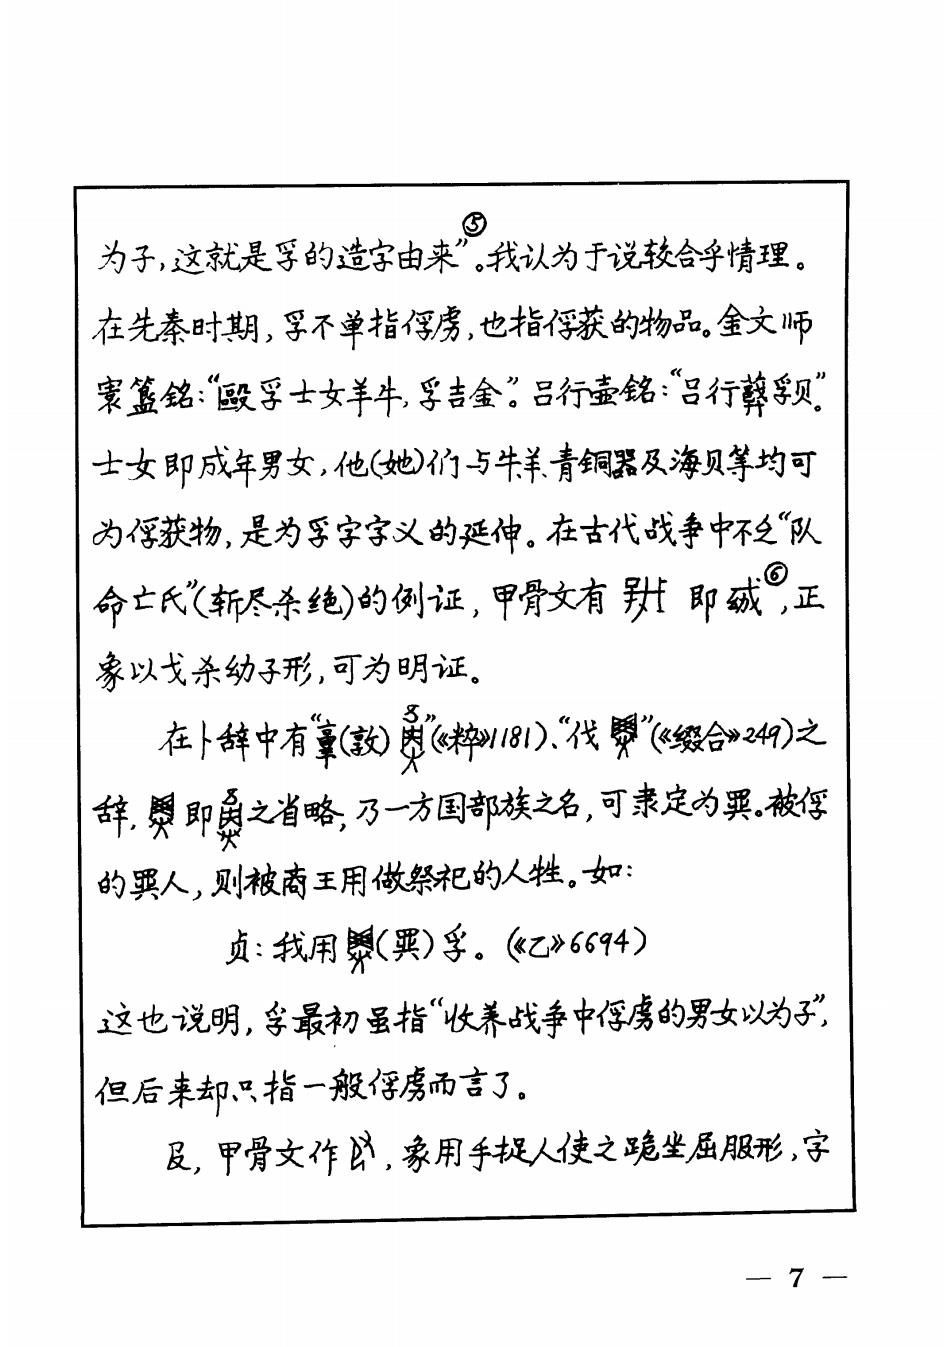 为子，这就是孚的造字由来”⑤。我认为于说较合乎情理。
在先秦时期，孚不单指俘虏，也指俘获的物品。金文师
寰簋铭：“毆孚士女羊牛，孚吉金”。吕行壶铭：“吕行孚贝”。
士女即成年男女，他(她)们与牛、羊、青铜器及海贝等均可
为俘获物，是为孚字字义的延伸。在古代战争中不乏“队
命亡氏”(斩尽杀绝)的例证，甲骨文有 即⑥，正
象以戈杀幼子形，可为明证。
在卜辞中有“(敦)”(《粹》1181)、“伐”(《缀合》249)之
辞，即之省略，乃一方国部族之名，可隶定为。被俘
的人，则被商王用做祭祀的人牲。如：
贞：我用()孚。(《乙》6694)
这也说明，孚最初虽指“收养战争中俘虏的男女以为子”，
但后来却只指一般俘虏而言了。
𠬝，甲骨文作，象用手捉人使之跪坐屈服形，字
— 7 —